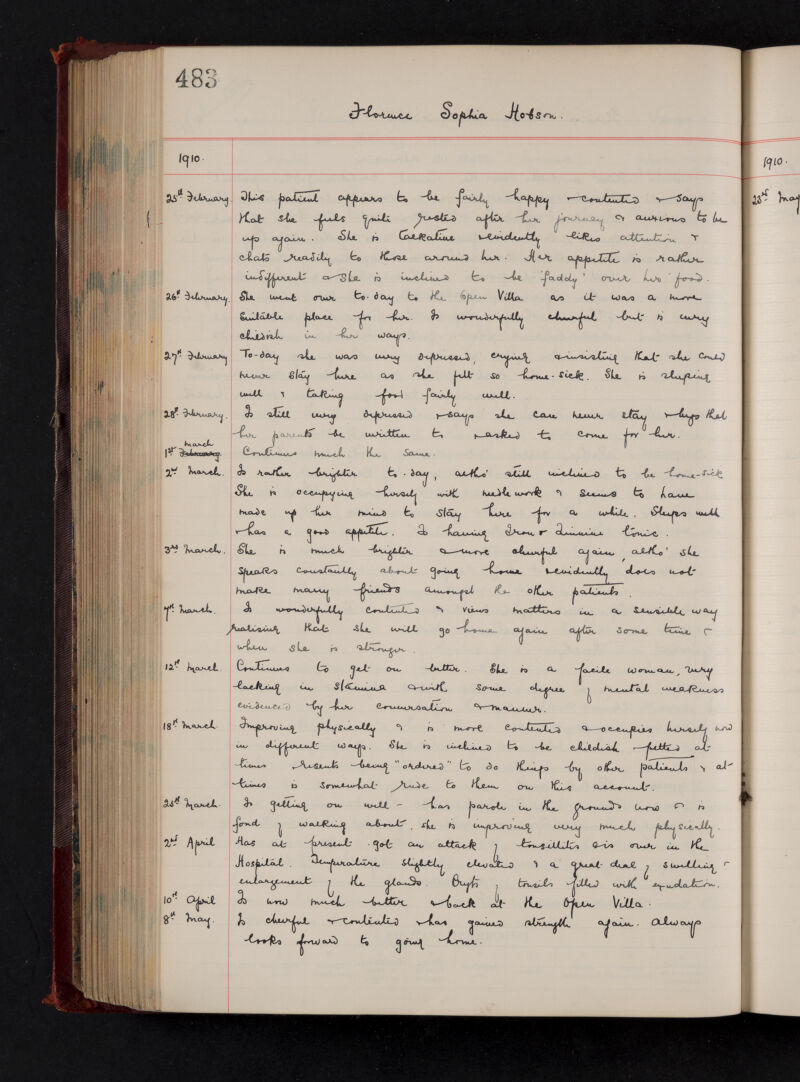 483
Florence Sophia Hobson.
1910.
1910.
25th February. This patient appears to be fairly happy & contented & says
23rd May
that she feels quite rested after her journey & anxious to be
up again. She is talkative & evidently likes attention &
chats readily to those around her. Her appetite is rather
indifferent & She is inclined to be 'faddy' over her food.
26th February. She went over to-day to the Open Villa as it was a more
suitable place for her. Is wonderfully cheerful but is very
childish in her ways.
27th February To-day she was very depressed, crying & insisting that she could
never stay here as she felt so home-sick. She is sleeping
well & taking food fairly well.
28th February. Is still very depressed & says she can never stay & begs that
her parents be written to & asked to come for her.
march
1st February Continues much the same.
2nd March. Is rather brighter to-day, altho' still inclined to be home-sick
She is occupying herself with needlework & seems to have
made up her mind to stay here for a while. Sleeps well
& has a good appetite. Is having Iron & Quinine tonic.
3rd March. She is much brighter & more cheerful again, altho' she
speaks constantly about going home & evidently does not
make many friends amongst the other patients.
7th March. Is wonderfully contented & views matters in a sensible way
realising that she will go home again after some time &
when she is stronger.
12th March. Continues to get on better. She is a facile woman, very
lacking in stamina & with some degree of mental weakness
evidenced by her conversation & manner.
18th March Improving physically & is more contented & occupies herself now
in different ways. She is inclined to be childish & petted at
times & resents being "ordered" to do things by other patients & at
times is somewhat rude to them on this account.
25th March. Is getting on well - has parole in the grounds now & is
fond of walking about. She is improving very much physically.
2nd April Has at present got an attack of tonsillitis & is over in the
Hospital. Temperature slightly elevated & a great deal of swelling &
enlargement of the glands. Crypts of tonsils filled with exudation.
10th April Is now much better & back at the Open Villa.
8th May. Is cheerful & contented & has gained strength again. Always
looks forward to going home.